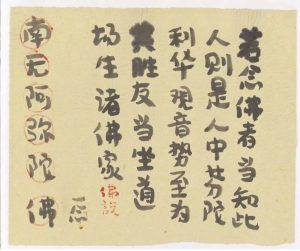 若念佛者当知此
人则是人中芬陀
利华观音势至为
其胜友当坐道
场生诸佛家 佛说
南无阿弥陀佛